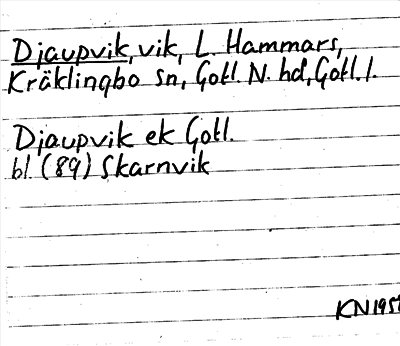 Djaupvik, vik, L. Hammars,
Kräklingbo sn, Gotl. N. hd, Gotl. l.
Djaupvik ek Gotl.
bl. (89) Skarnvik
KN 1951